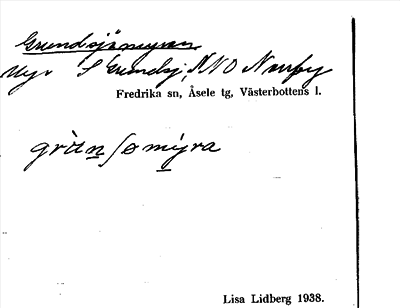 Grundsjömyran
Myr S Grundsj, NNO Norrby
Fredrika sn, Åsele tg, Västerbottens l.
gràn̲ʃom̲ýra
Lisa Lidberg 1938.